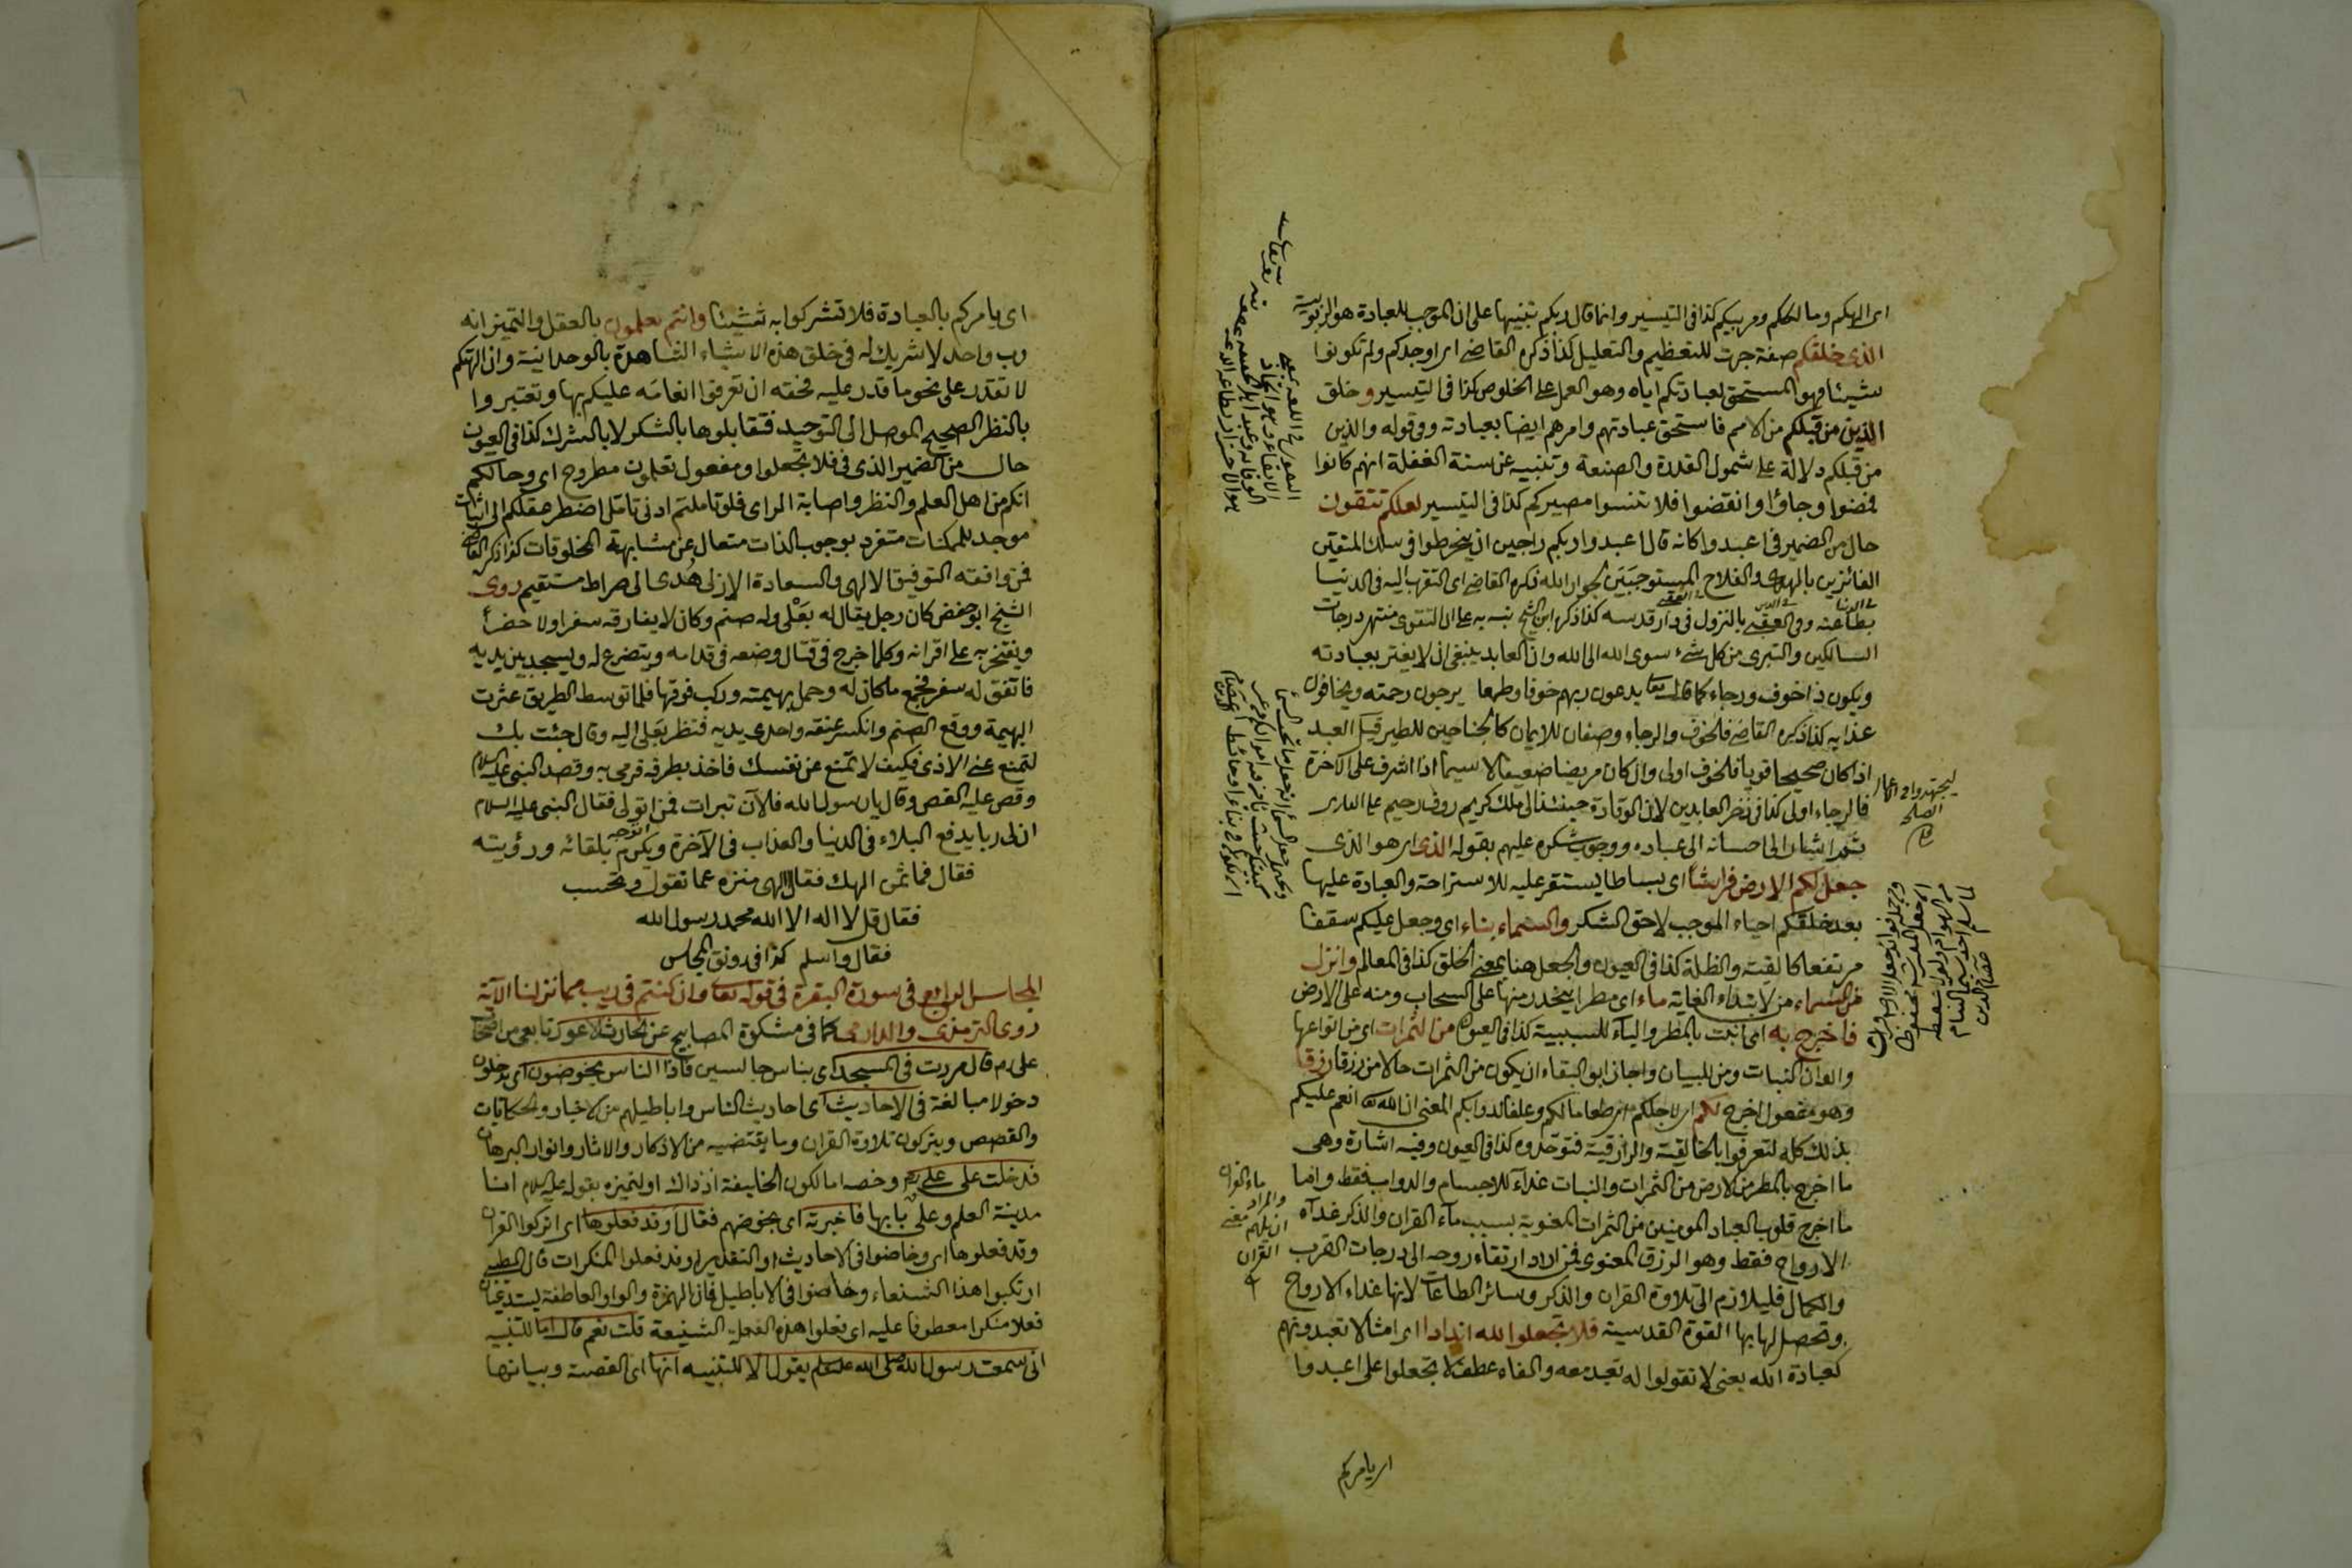 اى الهكم ومالككم ومربيكم كذا فى التيسير وانما قال ربكم تنبيها على ان الموجب للعبادة هو الربوبية
الذى خلقكم صفة جرت للتعظيم والتعليل كذا ذكره القاضى اى اوجدكم ولم تكونوا
شيئا فهو المستحق لعبادتكم اياه وهو العمل على الخلوص كذا فى التيسير وخلق
الذين من قبلكم من الامم فاستحق عبادتهم وامرهم ايضا بعبادته وفى قوله والذين
من قبلكم دلالة على شمول القدرة والصنعة وتنبيه عن سنة الغفلة انهم كانوا
فمضوا وجاؤا وانقضوا فلا تنسوا مصيركم كذا فى التيسير لعلكم تتقون
حال من الضمير فى اعبدوا كانه قال اعبدوا ربكم راجين ان ينخرطوا فى سلك المتقين
الفائزين بالهدى والفلاح المستوجبين لجوار الله ذكره القاضى اى التقرب اليه فى الدنيا
بطاعته وفى العقبى بالنزول فى دار قدسه كذا ذكره ابن الشيخ نبه به على ان التقوى منتهى درجات
السالكين والتبرى من كل شىء سوى الله الى الله وان العابد ينبغى ان لا يغتر بعبادته
ويكون ذا خوف ورجاء كما قال تعا يدعون ربهم خوفا وطمعا يرجون رحمته ويخافون
عذابه كذا ذكره القاضى فالخوف والرجاء وصفان للايمان كالجناحين للطير قيل العبد
اذا كان صحيحا قويا فالخوف اولى وان كان مريضا ضعيفا لا سيما اذا اشرف على الآخرة
فالرجاء اولى كذا فى ذخر العابدين لان الوفادة حينئذ الى ملك كريم روف رحيم
ثم اشار الى احسانه الى عباده ووجوب شكره عليهم بقوله الذى اى هو الذى
جعل لكم الارض فراشا اى بساطا يستقر عليه للاستراحة والعبادة عليها
بعد خلقكم احياء الموجب لاحق الشكر والسماء بناء اى وجعل عليكم سقفا
مرتفعا كالقبة والظلة كذا فى العيون والجعل هنا بمعنى الخلق كذا فى المعالم وانزل
من السماء من لابتداء الغاية ماء اى مطرا ينحدر منها على السحاب ومنه على الارض
فاخرج به اى انبت بالمطر والباء للسببية كذا فى العيون من الثمرات اى من انواعها
والوان النبات ومن للبيان واجاز ابو البقاء ان يكون من الثمرات حالا من رزقا رزقا
وهو مفعول اخرج لكم اى لاجلكم اى طعاما لكم وعلفا لدوابكم المعنى ان الله انعم عليكم
بذلك كله لتعرفوا بالخالقية والرازقية فتوحدوه كذا فى العيون وفيه اشارة وهى
ما اخرج بالمطر من الارض من الثمرات والنبات غذاء للاجسام والدواب فقط واما
ما اخرج قلوب العباد المومنين من الثمرات المعنوية بسبب ماء القران والذكر غذاء
الارواح فقط وهو الرزق المعنوى فمن اراد ارتقاء روحه الى درجات القرب
والكمال فليلازم الى تلاوة القران والذكر وسائر الطاعات لانها غذاء الارواح
وتحصل لها بها القوة القدسية فلا تجعلوا لله اندادا اى امثالا تعبدونهم
كعبادة الله يعنى لا تقولوا له تعبد معه والفاء عطف لا تجعلوا على اعبدوا
ليجتهدوا فى اعمال
الصلحة
ماء القران
والمراد
القران
اى يامركم
اى يامركم بالعبادة فلا تشركوا به شيئا وانتم تعلمون بالعقل والتميز انه
رب واحد لا شريك له فى خلق هذه الاشياء الشاهدة بالوحدانية وان الهتكم
لا تقدر على نحو ما قدر عليه فحقه ان تعرفوا انعامه عليكم بها وتعتبروا
بالنظر الصحيح الموصل الى التوحيد فتقابلوها بالشكر لا بالشرك كذا فى العيون
حال من الضمير الذى فى فلا تجعلوا ومفعول تعلمون مطروح اى وحالكم
انكم من اهل العلم والنظر واصابة الراى فلو تاملتم ادنى تامل اضطر عقلكم الى اثبات
موجد للممكنات متفرد بوجوب الذات متعال عن مشابهة المخلوقات كذا ذكره القاضى
فمن وافقه التوفيق الالهى والسعادة الازلى هدى الى صراط مستقيم روى
الشيخ ابو حفص كان رجل يقال له بعلى وله صنم وكان لا يفارقه سفرا ولا حضرا
ويفتخر به على اقرانه وكلما خرج فى قتال وضعه فى قدامه ويتضرع له ويسجد بين يديه
فاتفق له سفر فجمع ما كان له وحمل بهيمته وركب فوقها فلما توسط الطريق عثرت
البهيمة ووقع الصنم وانكسر عنقه واحدى يديه فنظر بعلى اليه وقال جئت بك
لتمنع عنى الاذى فكيف لا تمنع عن نفسك فاخذ بطرفه فرمى به وقصد النبى عليه السلام
وقص عليه القصص وقال يا رسول الله فلان تبرات فمن اتولى فقال النبى عليه السلام
ان لى ربا يدفع البلاء فى الدنيا والعذاب فى الآخرة ويكرم بلقائه ورؤيته
فقال فما ثمن الهك فقال الهى منزه عما تقول وتحسب
فقال قل لا اله الا الله محمد رسول الله
فقال واسلم كذا فى رونق المجالس
المجلس الرابع فى سورة البقرة فى قوله تعا وان كنتم فى ريب مما نزلنا الآية
روى الترمذى والدارمى كما فى مشكوة المصابيح عن الحارث الاعور تابعى من اصحاب
على رم قال مررت فى المسجد اى بناس جالسين فاذا الناس يخوضون اى يدخلون
دخولا مبالغة فى الاحاديث اى احاديث الناس واباطيلهم من الاخبار والحكايات
والقصص ويتركون تلاوة القران وما يقتضيه من الاذكار والاثار وانوار البرهان
فدخلت على على رم وخصه اما لكون الخليفة اذ ذاك او لتميزه بقوله عليه السلام انا
مدينة العلم وعلى بابها فاخبرته اى بخوضهم فقال اوقد فعلوها اى اتركوا القران
وقد فعلوها اى وخاضوا فى الاحاديث او التقدير اوقد فعلوا المنكرات قال الطيبى
ارتكبوا هذا الشنعاء وخاضوا فى الاباطيل فان الهمزة والواو العاطفة يستدعيان
فعلا منكرا معطوفا عليه اى فعلوا هذه الفعلة الشنيعة قلت نعم قال اما للتنبيه
انى سمعت رسول الله صلى الله عليه وسلم يقول الا للتنبيه انها اى القصة وبيانها